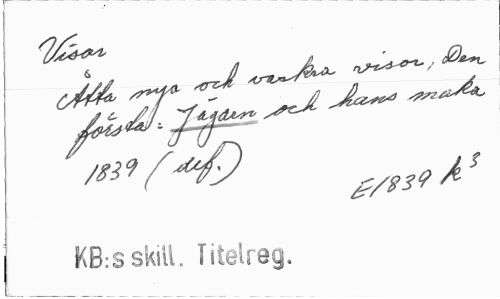 Visor
Åtta nya och vackra visor, Den
första: Jägarn och hans maka
1839 (def.)
E1839 k³
KB:s skill. Titelreg.